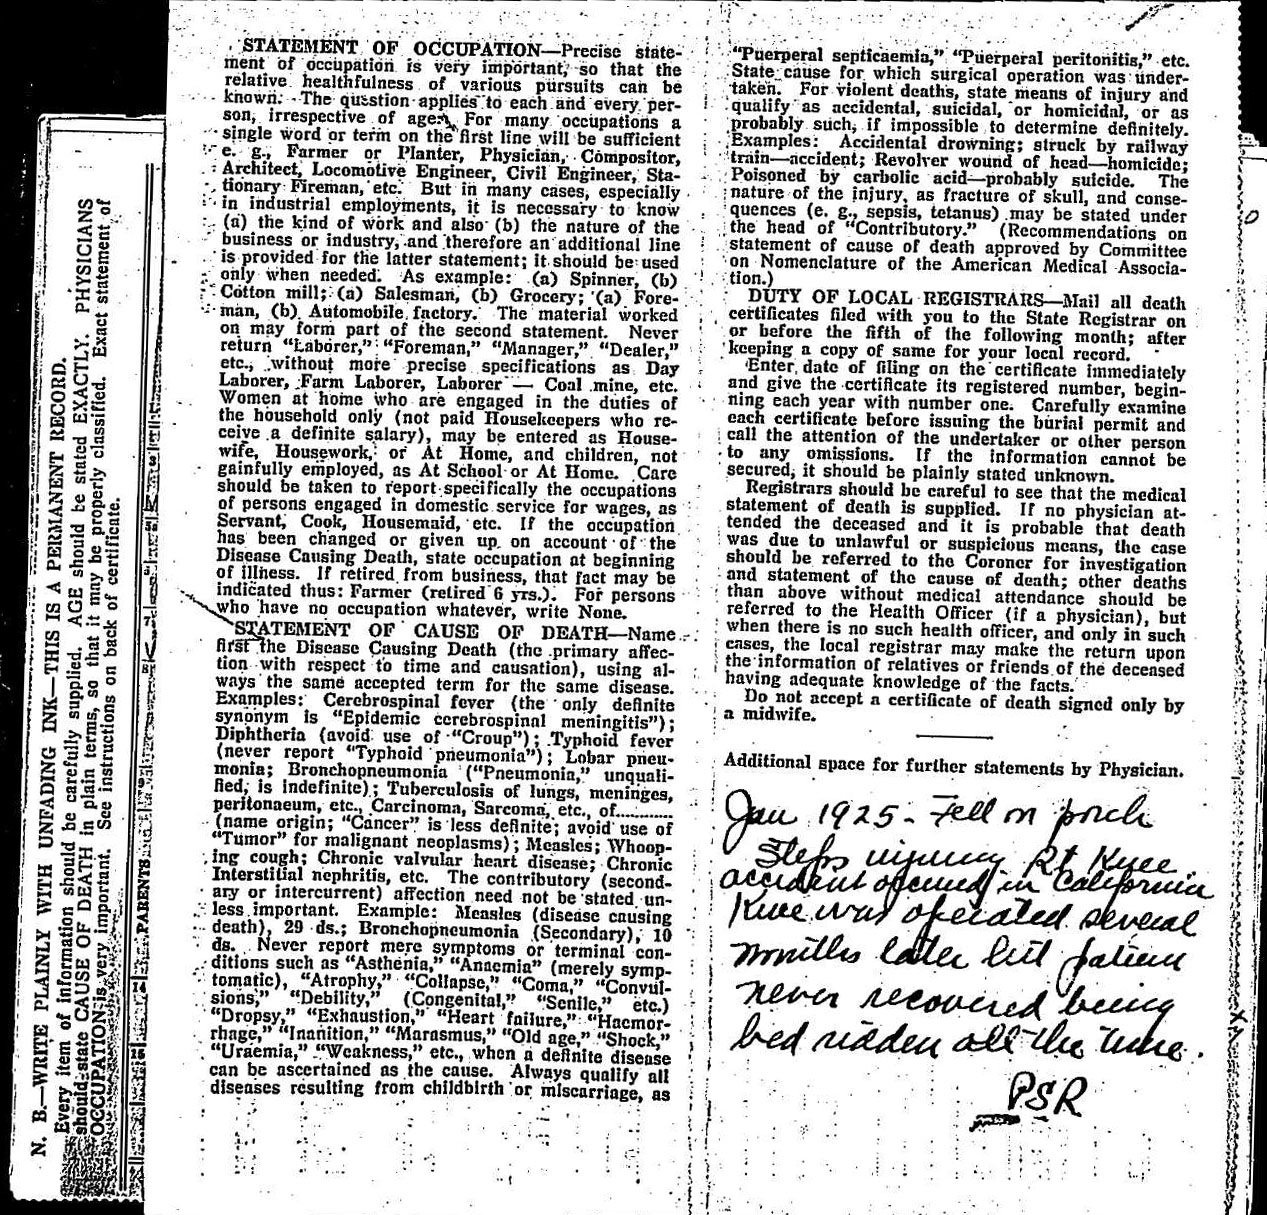 N. B.—WRITE PLAINLY WITH UNFADING INK—THIS IS A PERMANENT RECORD.
Every item of information should be carefully supplied. AGE should be stated EXACTLY. PHYSICIANS
should state CAUSE OF DEATH in plain terms, so that it may be properly classified. Exact statement of
OCCUPATION is very important. See instructions on back of certificate.
PARENTS
STATEMENT OF OCCUPATION—Precise state-
ment of occupation is very important, so that the
relative healthfulness of various pursuits can be
known. The question applies to each and every per-
son, irrespective of age. For many occupations a
single word or term on the first line will be sufficient
e. g., Farmer or Planter, Physician, Compositor,
Architect, Locomotive Engineer, Civil Engineer, Sta-
tionary Fireman, etc. But in many cases, especially
in industrial employments, it is necessary to know
(a) the kind of work and also (b) the nature of the
business or industry, and therefore an additional line
is provided for the latter statement; it should be used
only when needed. As example: (a) Spinner, (b)
Cotton mill; (a) Salesman, (b) Grocery; (a) Fore-
man, (b) Automobile factory. The material worked
on may form part of the second statement. Never
return "Laborer," "Foreman," "Manager," "Dealer,"
etc., without more precise specifications as Day
Laborer, Farm Laborer, Laborer — Coal mine, etc.
Women at home who are engaged in the duties of
the household only (not paid Housekeepers who re-
ceive a definite salary), may be entered as House-
wife, Housework, or At Home, and children, not
gainfully employed, as At School or At Home. Care
should be taken to report specifically the occupations
of persons engaged in domestic service for wages, as
Servant, Cook, Housemaid, etc. If the occupation
has been changed or given up on account of the
Disease Causing Death, state occupation at beginning
of illness. If retired from business, that fact may be
indicated thus: Farmer (retired 6 yrs.). For persons
who have no occupation whatever, write None.
STATEMENT OF CAUSE OF DEATH—Name
first the Disease Causing Death (the primary affec-
tion with respect to time and causation), using al-
ways the same accepted term for the same disease.
Examples: Cerebrospinal fever (the only definite
synonym is "Epidemic cerebrospinal meningitis");
Diphtheria (avoid use of "Croup"); Typhoid fever
(never report "Typhoid pneumonia"); Lobar pneu-
monia; Bronchopneumonia ("Pneumonia," unquali-
fied, is indefinite); Tuberculosis of lungs, meninges,
peritonaeum, etc., Carcinoma, Sarcoma, etc., of............
(name origin; "Cancer" is less definite; avoid use of
"Tumor" for malignant neoplasms); Measles; Whoop-
ing cough; Chronic valvular heart disease; Chronic
Interstitial nephritis, etc. The contributory (second-
ary or intercurrent) affection need not be stated un-
less important. Example: Measles (disease causing
death), 29 ds.; Bronchopneumonia (Secondary), 10
ds. Never report mere symptoms or terminal con-
ditions such as "Asthenia," "Anaemia" (merely symp-
tomatic), "Atrophy," "Collapse," "Coma," "Convul-
sions," "Debility," (Congenital," "Senile," etc.)
"Dropsy," "Exhaustion," "Heart failure," "Haemor-
rhage," "Inanition," "Marasmus," "Old age," "Shock,"
"Uraemia," "Weakness," etc., when a definite disease
can be ascertained as the cause. Always qualify all
diseases resulting from childbirth or miscarriage, as
"Puerperal septicaemia," "Puerperal peritonitis," etc.
State cause for which surgical operation was under-
taken. For violent deaths, state means of injury and
qualify as accidental, suicidal, or homicidal, or as
probably such, if impossible to determine definitely.
Examples: Accidental drowning; struck by railway
train—accident; Revolver wound of head—homicide;
Poisoned by carbolic acid—probably suicide. The
nature of the injury, as fracture of skull, and conse-
quences (e. g., sepsis, tetanus) may be stated under
the head of "Contributory." (Recommendations on
statement of cause of death approved by Committee
on Nomenclature of the American Medical Associa-
tion.)
DUTY OF LOCAL REGISTRARS—Mail all death
certificates filed with you to the State Registrar on
or before the fifth of the following month; after
keeping a copy of same for your local record.
Enter date of filing on the certificate immediately
and give the certificate its registered number, begin-
ning each year with number one. Carefully examine
each certificate before issuing the burial permit and
call the attention of the undertaker or other person
to any omissions. If the information cannot be
secured, it should be plainly stated unknown.
Registrars should be careful to see that the medical
statement of death is supplied. If no physician at-
tended the deceased and it is probable that death
was due to unlawful or suspicious means, the case
should be referred to the Coroner for investigation
and statement of the cause of death; other deaths
than above without medical attendance should be
referred to the Health Officer (if a physician), but
when there is no such health officer, and only in such
cases, the local registrar may make the return upon
the information of relatives or friends of the deceased
having adequate knowledge of the facts.
Do not accept a certificate of death signed only by
a midwife.
Additional space for further statements by Physician.
Jan 1925 - Fell on porch
steps injuring Rt Knee
accident occured in California
Knee was operated several
months later but patient
never recovered being
bed ridden all the time.
PSR